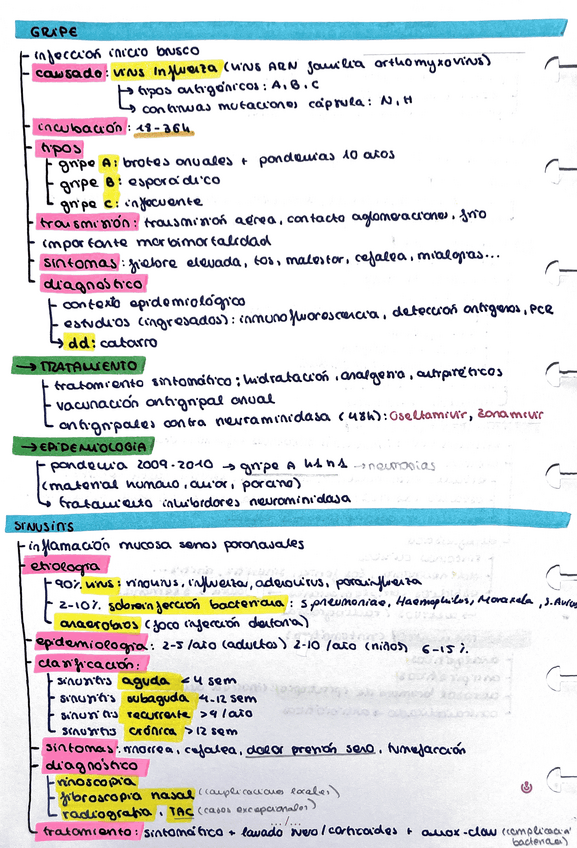 GRIPE
infección inicio brusco
causado: virus influenza (virus ARN familia orthomyxovirus)
→ tipos antigénicos: A, B, C
→ continuas mutaciones cápsula: N, H
incubación: 18-36h
tipos
gripe A: brotes anuales + pandemias 10 años
gripe B: esporádico
gripe C: infrecuente
transmisión: transmisión aérea, contacto aglomeraciones, frío
importante morbimortalidad
síntomas: fiebre elevada, tos, malestar, cefalea, mialgias...
diagnóstico
contexto epidemiológico
estudios (ingresados): inmunofluorescencia, detección antígenos, PCR
dd: catarro
→ TRATAMIENTO
tratamiento sintomático; hidratación, analgesia, antipiréticos
vacunación antigripal anual
antigripales contra neuraminidasa (48h): Oseltamivir, Zanamivir
→ EPIDEMIOLOGIA
pandemia 2009-2010 → gripe A h1n1 → neumonías
(material humano, aviar, porcino)
tratamiento inhibidores neuraminidasa
SINUSITIS
inflamación mucosa senos paranasales
etiología
90% virus: rinovirus, influenza, adenovirus, parainfluenza
2-10% sobreinfección bacteriana: S. pneumoniae, Haemophilus, Moraxela, S. Aureus
anaerobios (foco infección dentaria)
epidemiología: 2-5/año (adultos) 2-10/año (niños) 6-15%
clasificación:
sinusitis aguda < 4 sem
sinusitis subaguda 4-12 sem
sinusitis recurrente > 4/año
sinusitis crónica > 12 sem
síntomas: rinorrea, cefalea, dolor presión seno, tumefacción
diagnóstico
rinoscopia
fibroscopia nasal (complicaciones locales)
radiografía, TAC (casos excepcionales)
.../...
tratamiento: sintomático + lavado suero/corticoides + amox-clav (complicación
bacteriana)